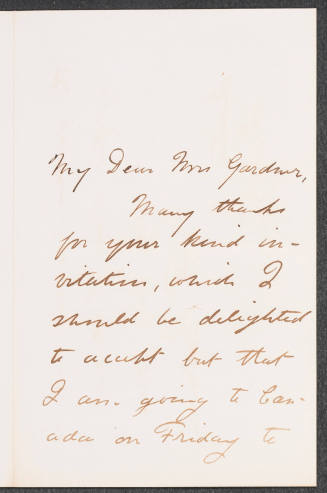 My Dear Mrs Gardner,
Many thanks
for your kind in-
vitation, which I
should be delighted
to accept but that
I am going to Can-
ada on Friday to